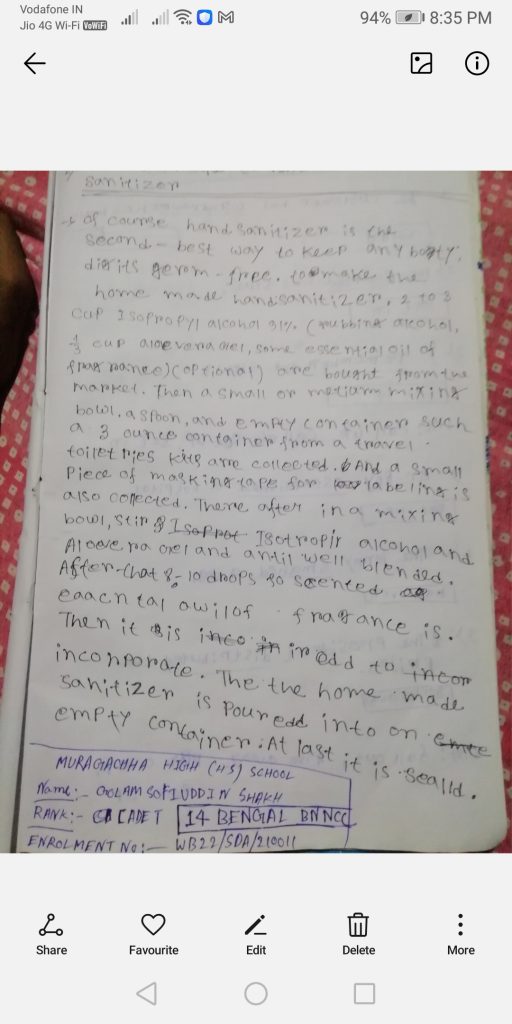 Vodafone IN
Jio 4G Wi-Fi VoWiFi
94% 8:35 PM
Sanitizer
of course hand sanitizer is the
second - best way to keep any
digits gerom - free. to make the
home made handsanitizer, 2 to 3
cup Isopropyl alcohol 91%. (rubbing alcohol,
cup aloevera gel, some essential oil of
(optional) are bought from the
market. Then a small or metiam mixing
bowl. a spoon, and empty container such
a 3 ounce container from a travel
toiletries kits are collected. And a small
Piece of masking tape for labeling is
also collected. There after in a mixing
bowl, stir Isotropir alcohol and
Aloevera gel and antil well blended.
After-that 8-10 drops so scented
fragrance is.
Then it is in odd to incor
incorporate. The the home made
sanitizer is poured into on
empty container. At last it is sealld.
MURAGACHHA HIGH (HS) SCHOOL
Name:- GOLAM SOFIUDDIN SHAKH
RANK:- CADET 14 BENGAL BN NCC
ENROLMENT No:- WB22/SDA/210011
Share Favourite Edit Delete More